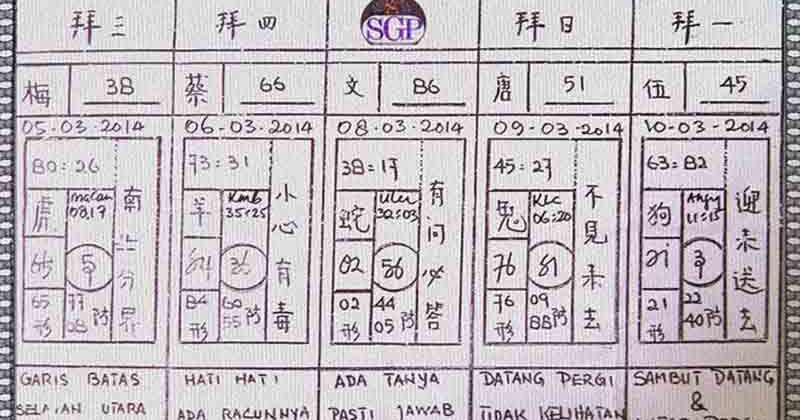 拜三
拜四
SGP
拜日
拜一
梅 3B
蔡 66
文 B6
唐 51
伍 45
05-03-2014
06-03-2014
08-03-2014
09-03-2014
10-03-2014
80=26
虎
macan
南北分界
65
65
77
形
防
73=31
羊
Kmb
35:25
小心有毒
84
60
55
形
防
38=17
蛇
Uler
32:03
有问必答
02
56
02
44
05
形
防
45=27
兔
Klc
06:20
不见来去
76
81
76
09
88
形
防
63=82
狗
Anjng
11:15
迎来送去
21
21
22
40
形
防
GARIS BATAS
SELATAN UTARA
HATI HATI
ADA RACUNNYA
ADA TANYA
PASTI JAWAB
DATANG PERGI
TIDAK KELIHATAN
SAMBUT DATANG
&